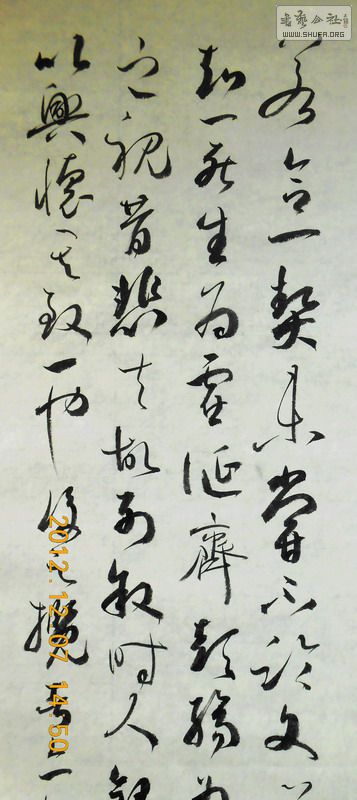 書藝公社
WWW.SHUFA.ORG
若合一契未嘗不臨文
知一死生為虛誕齊彭殤為
之視昔悲夫故列敘時人錄
以興懷其致一也後之攬者亦
2012.12.07 14:50